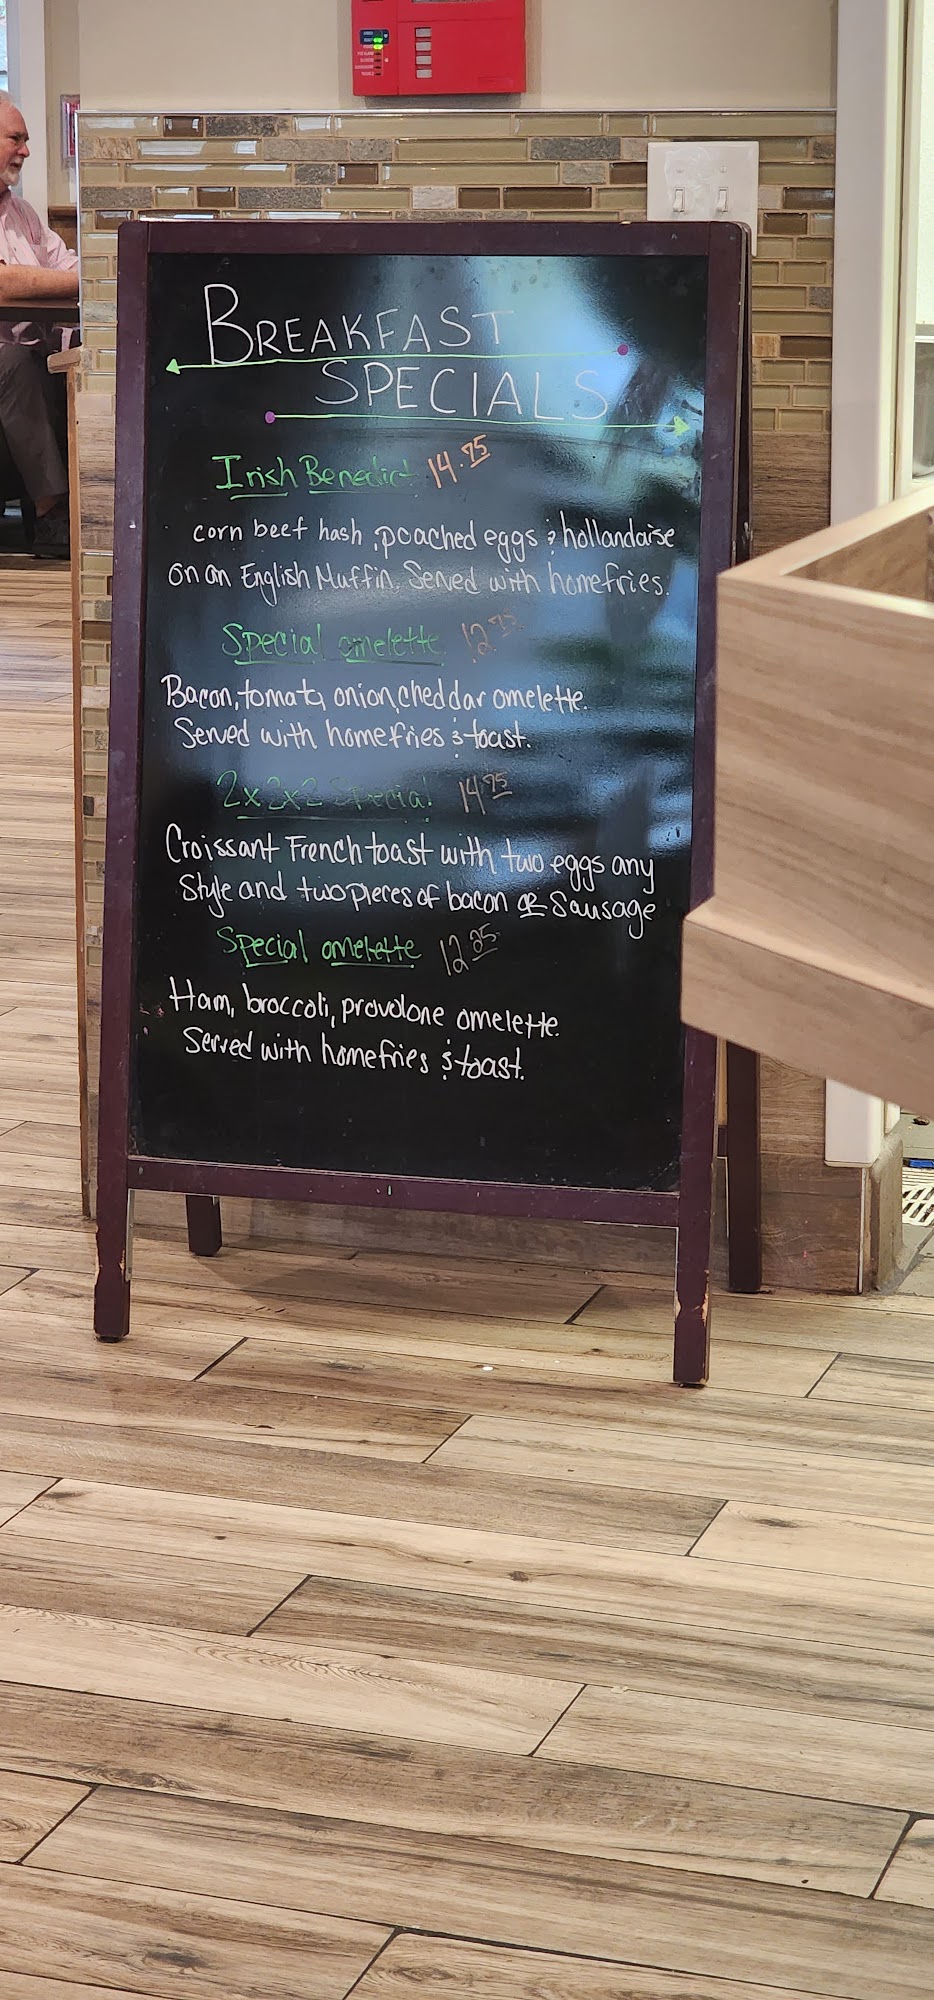 BREAKFAST
SPECIALS
Irish Benedict 14.75
corn beef hash, poached eggs & hollandaise
on an English Muffin. Served with homefries.
Special omelette 12
Bacon, tomato, onion, cheddar omelette.
Served with homefries & toast.
2x2x2 Special 14.75
Croissant French toast with two eggs any
Style and two pieces of bacon or Sausage
Special omelette 12.25
Ham, broccoli, provolone omelette.
Served with homefries & toast.